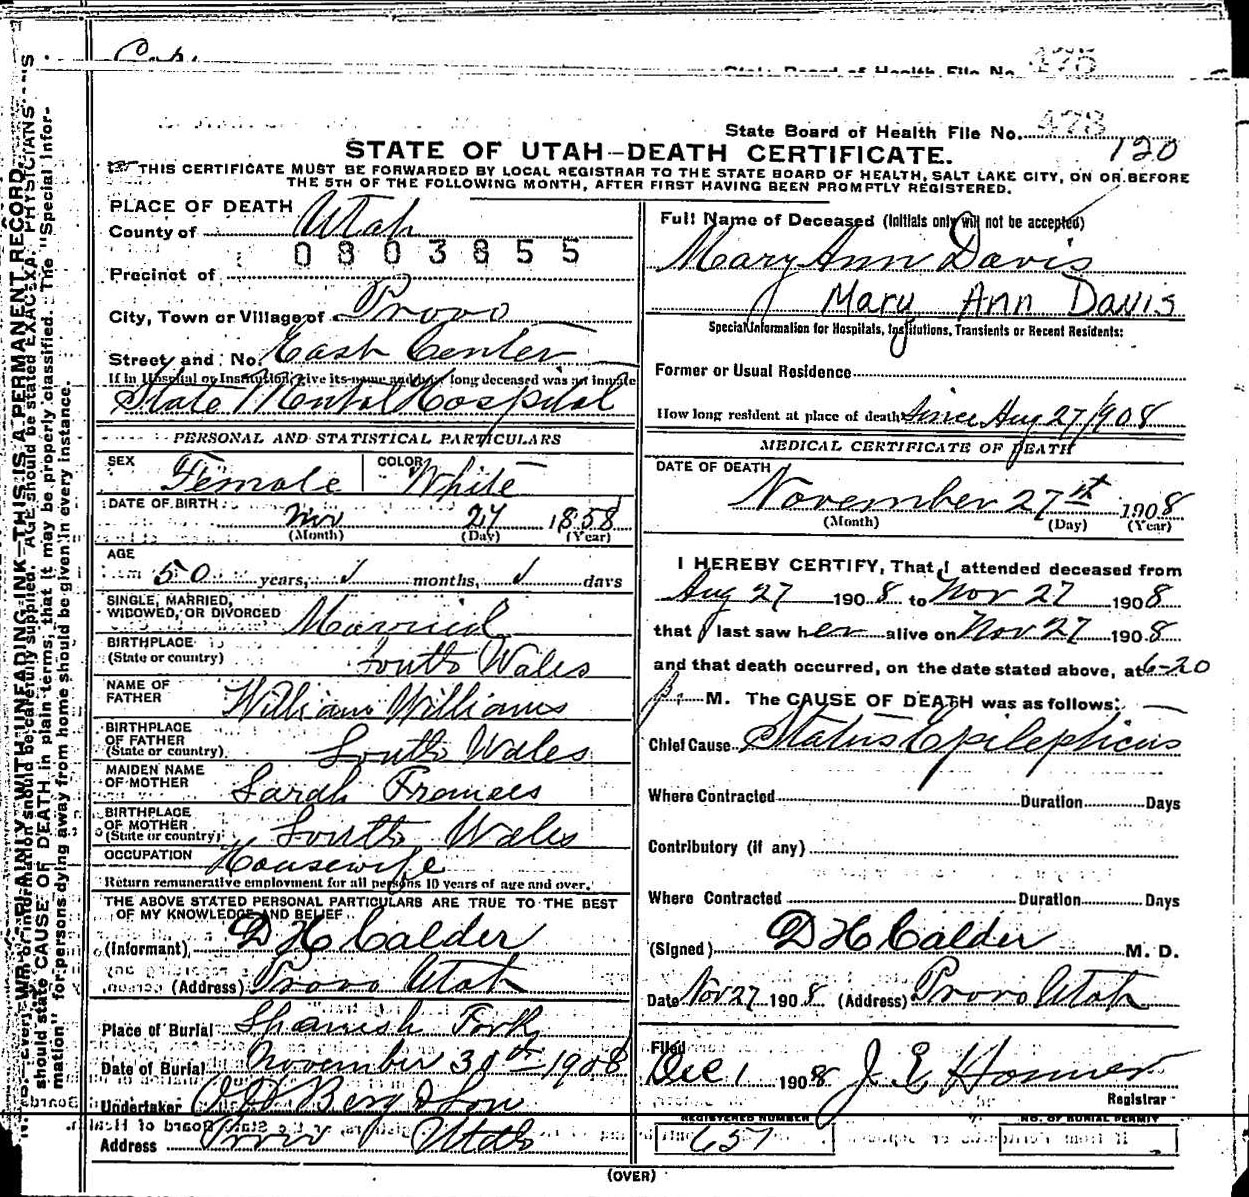 State Board of Health File No. 478
120
STATE OF UTAH—DEATH CERTIFICATE.
THIS CERTIFICATE MUST BE FORWARDED BY LOCAL REGISTRAR TO THE STATE BOARD OF HEALTH, SALT LAKE CITY, ON OR BEFORE
THE 5TH OF THE FOLLOWING MONTH, AFTER FIRST HAVING BEEN PROMPTLY REGISTERED.
PLACE OF DEATH
County of Utah
0803855
Precinct of
City, Town or Village of Provo
Street and No. East Center
If in Hospital or Institution, give its name and how long deceased was an inmate
State Mental Hospital
PERSONAL AND STATISTICAL PARTICULARS
SEX Female COLOR White
DATE OF BIRTH Nov 27 1858
(Month) (Day) (Year)
AGE
50 years, months, days
SINGLE, MARRIED, WIDOWED, OR DIVORCED Married
BIRTHPLACE (State or country) South Wales
NAME OF FATHER William Williams
BIRTHPLACE OF FATHER (State or country) South Wales
MAIDEN NAME OF MOTHER Sarah Frances
BIRTHPLACE OF MOTHER (State or country) South Wales
OCCUPATION Housewife
Return remunerative employment for all persons 10 years of age and over.
THE ABOVE STATED PERSONAL PARTICULARS ARE TRUE TO THE BEST
OF MY KNOWLEDGE AND BELIEF
(Informant) D H Calder
(Address) Provo Utah
Place of Burial Spanish Fork
Date of Burial November 30th 1908
Undertaker Berg & Son
Address Provo Utah
Full Name of Deceased (Initials only will not be accepted)
Mary Ann Davis
Mary Ann Davis
Special Information for Hospitals, Institutions, Transients or Recent Residents:
Former or Usual Residence
How long resident at place of death Since Aug 27/1908
MEDICAL CERTIFICATE OF DEATH
DATE OF DEATH
November 27 1908
(Month) (Day) (Year)
I HEREBY CERTIFY, That I attended deceased from
Aug 27 1908 to Nov 27 1908
that I last saw her alive on Nov 27 1908
and that death occurred, on the date stated above, at 6-20
p. M. The CAUSE OF DEATH was as follows:
Chief Cause Status Epilepticus
Where Contracted Duration Days
Contributory (if any)
Where Contracted Duration Days
(Signed) D H Calder M. D.
Date Nov 27 1908 (Address) Provo Utah
Filed
Dec 1 1908 J. E. Homer
Registrar
REGISTERED NUMBER NO. OF BURIAL PERMIT
657
(OVER)